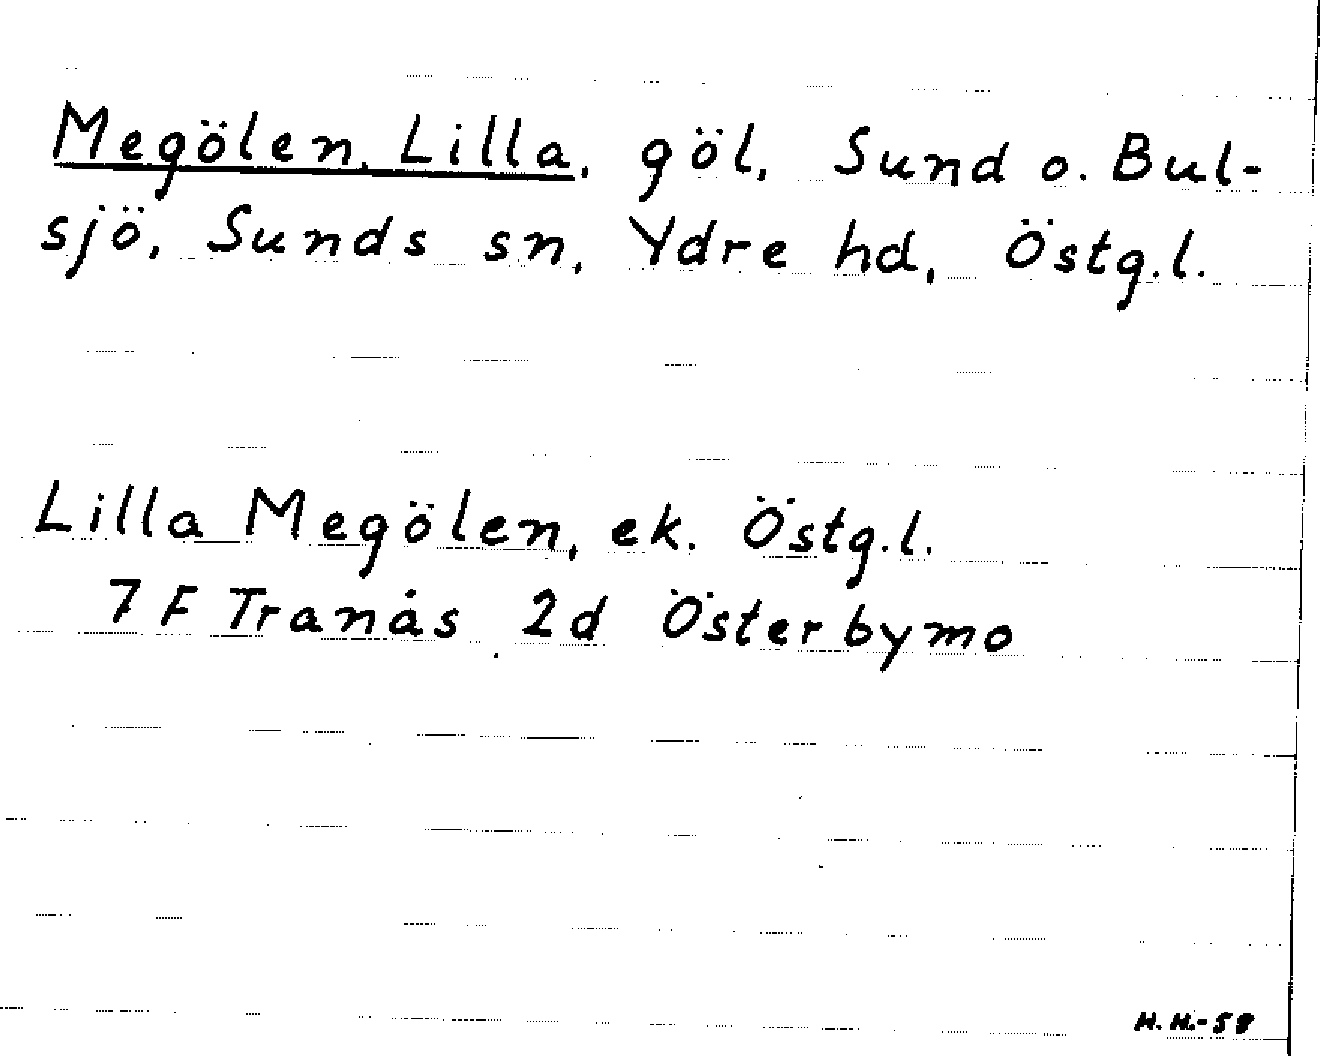 Megölen, Lilla, göl, Sund o. Bul-
sjö, Sunds sn, Ydre hd, Östg.l.
Lilla Megölen, ek. Östg.l.
7 F Tranås 2d Österbymo
H. H.-58